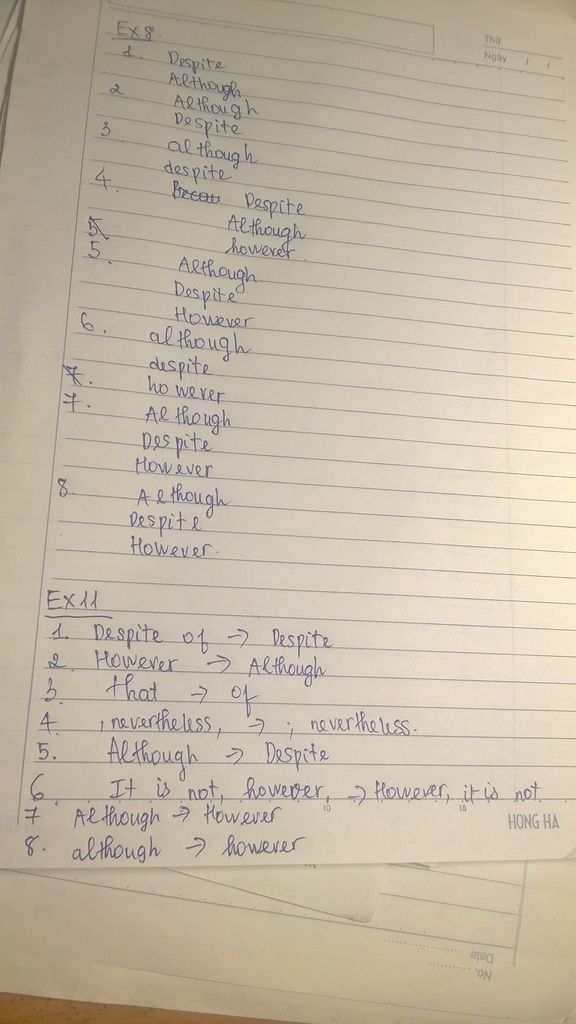 Thứ
Ngày / /
Ex 8.
1. Despite
Although
2 Although
Despite
3 although
despite
4. Becau Despite
Although
5. however.
5. Although
Despite
However
6. although
despite
7. however
7. Although
Despite
However
8. Although
Despite
However.
Ex 11
1. Despite of → Despite
2. However → Although
3. that → of
4. , nevertheless, → ; nevertheless.
5. Although → Despite
6. It is not, however, → However, it is not
7 Although → However
8. although → however
10 15
HONG HA
Date
No.